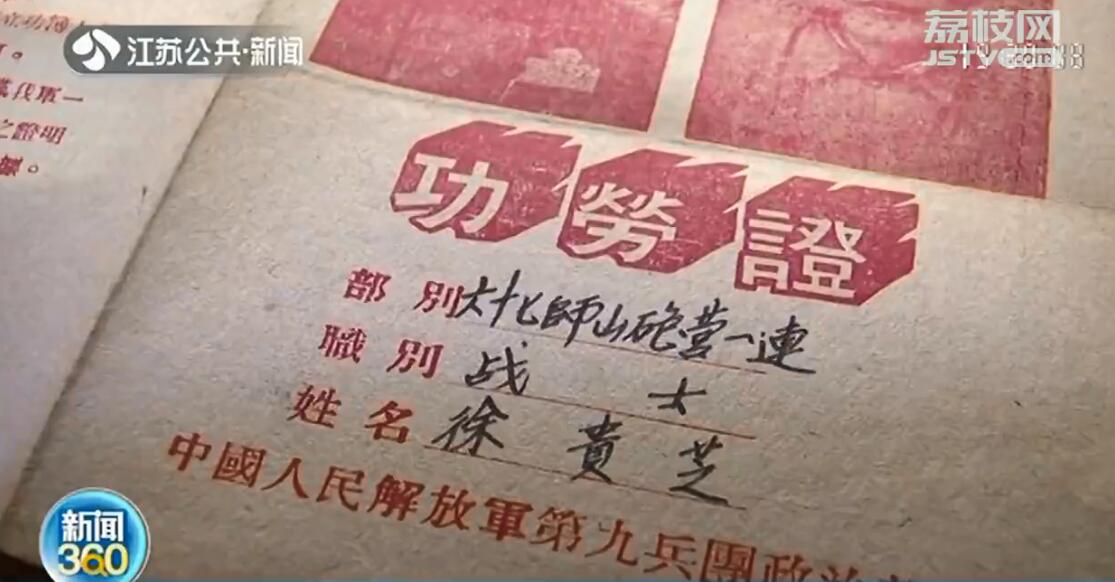 江苏公共·新闻
荔枝网
JSTV.com
我军一
之證明
據。
功勞證
部別 六十七師山砲营一連
職別 战士
姓名 徐貴芝
中國人民解放軍第九兵團政治
新闻
360